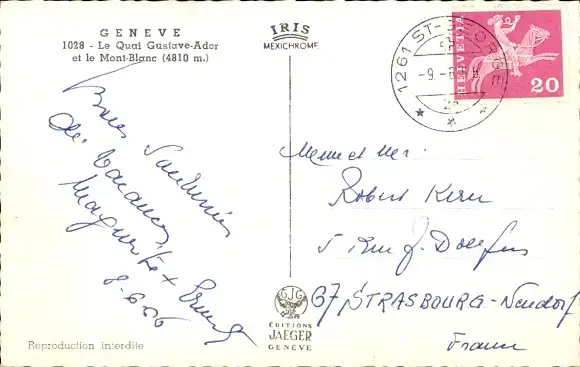 GENEVE
1028 - Le Quai Gustave-Ador
et le Mont-Blanc (4810 m.)
IRIS
MEXICHROME
1261 ST-GEORGE
-9.-6
HELVETIA
20
Bons Souvenirs
de Vacances
Marguerite + Ernest
8.6.66
Mme et Mr.
Robert Kern
5 Rue J. Dollfus
67 STRASBOURG - Neudorf
France
GJG
EDITIONS
JAEGER
GENEVE
Reproduction interdite